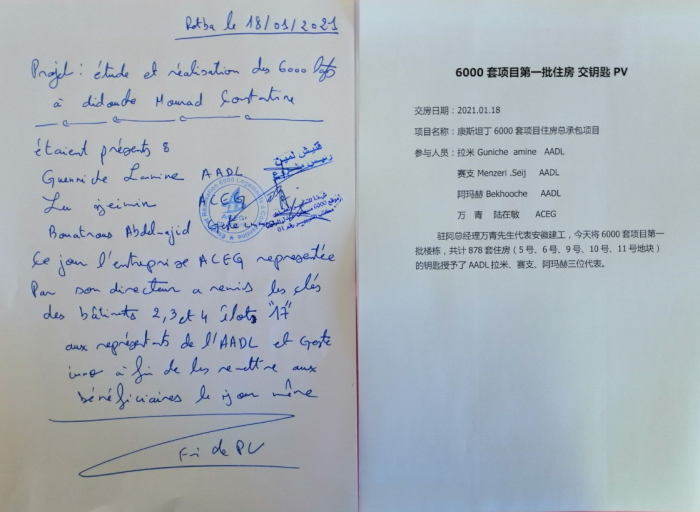 Rotba le 18/01/2021
Projet : étude et réalisation des 6000 logts
à didouche Mourad Constantine
étaient présents :
Lamine AADL
Lu ACEG
Abdel-ajid Geste inno
Ce jour l'entreprise ACEG representée
Par son directeur a remis les clés
des bâtiments 2, 3 et 4 îlots "17"
aux représentants de l'AADL et Geste
inno à fin de les remettre aux
bénéficiaires le jour même
Fin de PV
6000 套项目第一批住房 交钥匙 PV
交房日期：2021.01.18
项目名称：康斯坦丁 6000 套项目住房总承包项目
参与人员：拉米 Guniche amine AADL
赛支 Menzeri .Seij AADL
阿玛赫 Bekhooche AADL
万 青 陆在敏 ACEG
驻阿总经理万青先生代表安徽建工，今天将 6000 套项目第一
批楼栋，共计 878 套住房（5 号、6 号、9 号、10 号、11 号地块）
的钥匙授予了 AADL 拉米、赛支、阿玛赫三位代表。